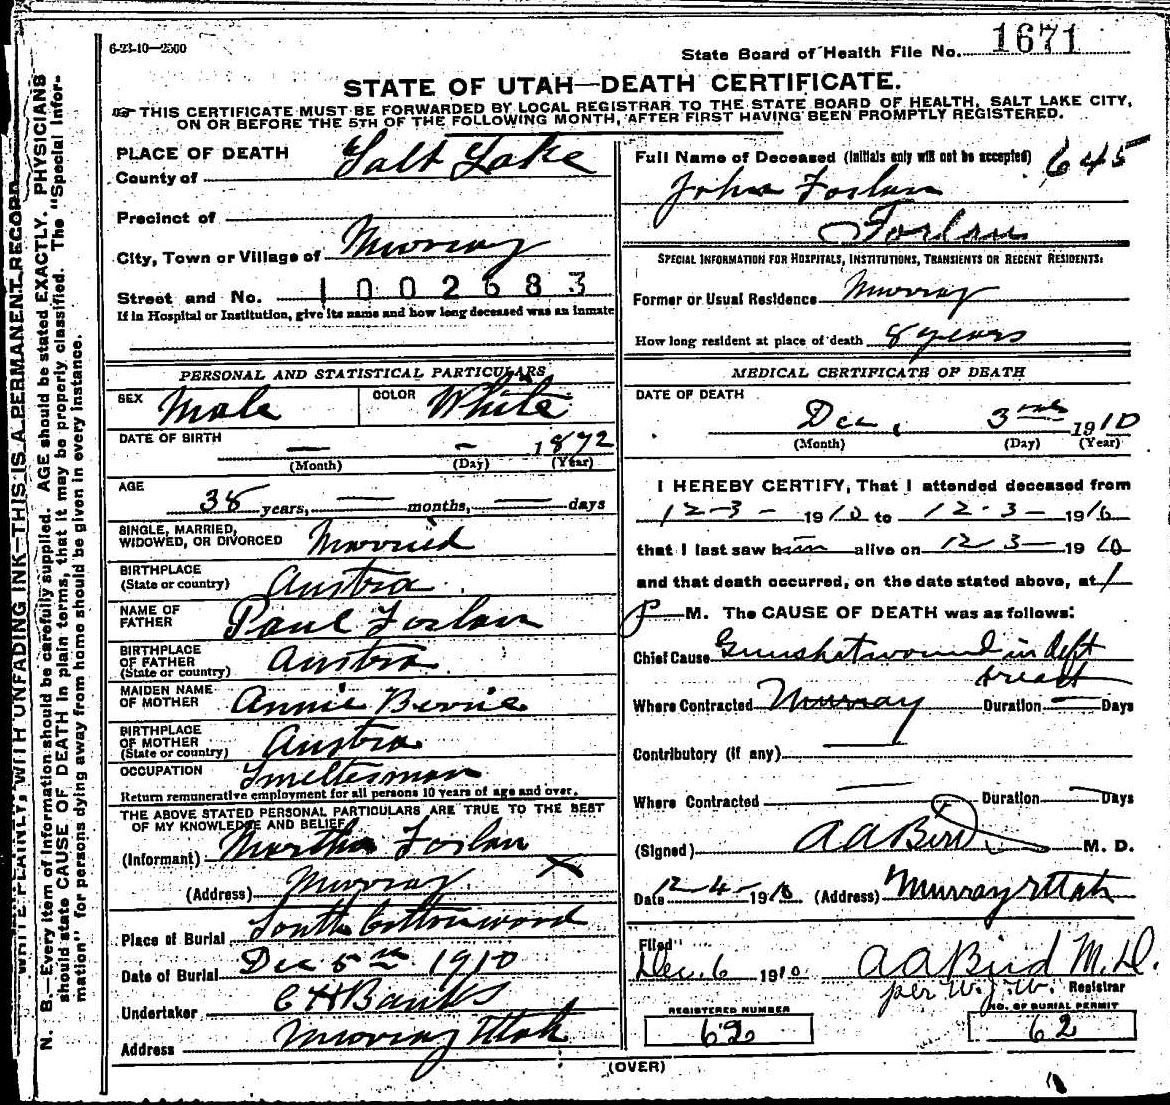 6-23-10—2500
State Board of Health File No. 1671
STATE OF UTAH—DEATH CERTIFICATE.
THIS CERTIFICATE MUST BE FORWARDED BY LOCAL REGISTRAR TO THE STATE BOARD OF HEALTH, SALT LAKE CITY,
ON OR BEFORE THE 5TH OF THE FOLLOWING MONTH, AFTER FIRST HAVING BEEN PROMPTLY REGISTERED.
WRITE PLAINLY, WITH UNFADING INK—THIS IS A PERMANENT RECORD
N. B.—Every item of information should be carefully supplied. AGE should be stated EXACTLY. PHYSICIANS
should state CAUSE OF DEATH in plain terms, that it may be properly classified. The "Special Infor-
mation" for persons dying away from home should be given in every instance.
PLACE OF DEATH
County of Salt Lake
Precinct of
City, Town or Village of Murray
Street and No. 1002683
If in Hospital or Institution, give its name and how long deceased was an inmate
PERSONAL AND STATISTICAL PARTICULARS
SEX Male COLOR White
DATE OF BIRTH — - 1872
(Month) (Day) (Year)
AGE
38 years, — months, — days
SINGLE, MARRIED,
WIDOWED, OR DIVORCED Married
BIRTHPLACE
(State or country) Austra
NAME OF
FATHER Paul Forlan
BIRTHPLACE
OF FATHER
(State or country) Austra
MAIDEN NAME
OF MOTHER Annie
BIRTHPLACE
OF MOTHER
(State or country) Austra
OCCUPATION Smelterman
Return remunerative employment for all persons 10 years of age and over.
THE ABOVE STATED PERSONAL PARTICULARS ARE TRUE TO THE BEST
OF MY KNOWLEDGE AND BELIEF
(Informant) Martha Forlan
(Address) Murray X
Place of Burial South Cottonwood
Date of Burial Dec 5th 1910
Undertaker C H Banks
Address Murray Utah
Full Name of Deceased (Initials only will not be accepted) 645
John Forlan
Forlan
SPECIAL INFORMATION FOR HOSPITALS, INSTITUTIONS, TRANSIENTS OR RECENT RESIDENTS:
Former or Usual Residence Murray
How long resident at place of death 8 years
MEDICAL CERTIFICATE OF DEATH
DATE OF DEATH
Dec, 3 1910
(Month) (Day) (Year)
I HEREBY CERTIFY, That I attended deceased from
12-3- 1910 to 12-3- 1910
that I last saw him alive on 12-3- 1910
and that death occurred, on the date stated above, at 1
P M. The CAUSE OF DEATH was as follows:
Chief Cause Gunshot wound in left
breast
Where Contracted Murray Duration — Days
Contributory (if any) —
Where Contracted — Duration — Days
(Signed) A A Bird M. D.
Date 12-4- 1910 (Address) Murray Utah
Filed Dec. 6 1910 A A Bird M.D.
per W. J. W. Registrar
REGISTERED NUMBER
62
NO. OF BURIAL PERMIT
62
(OVER)